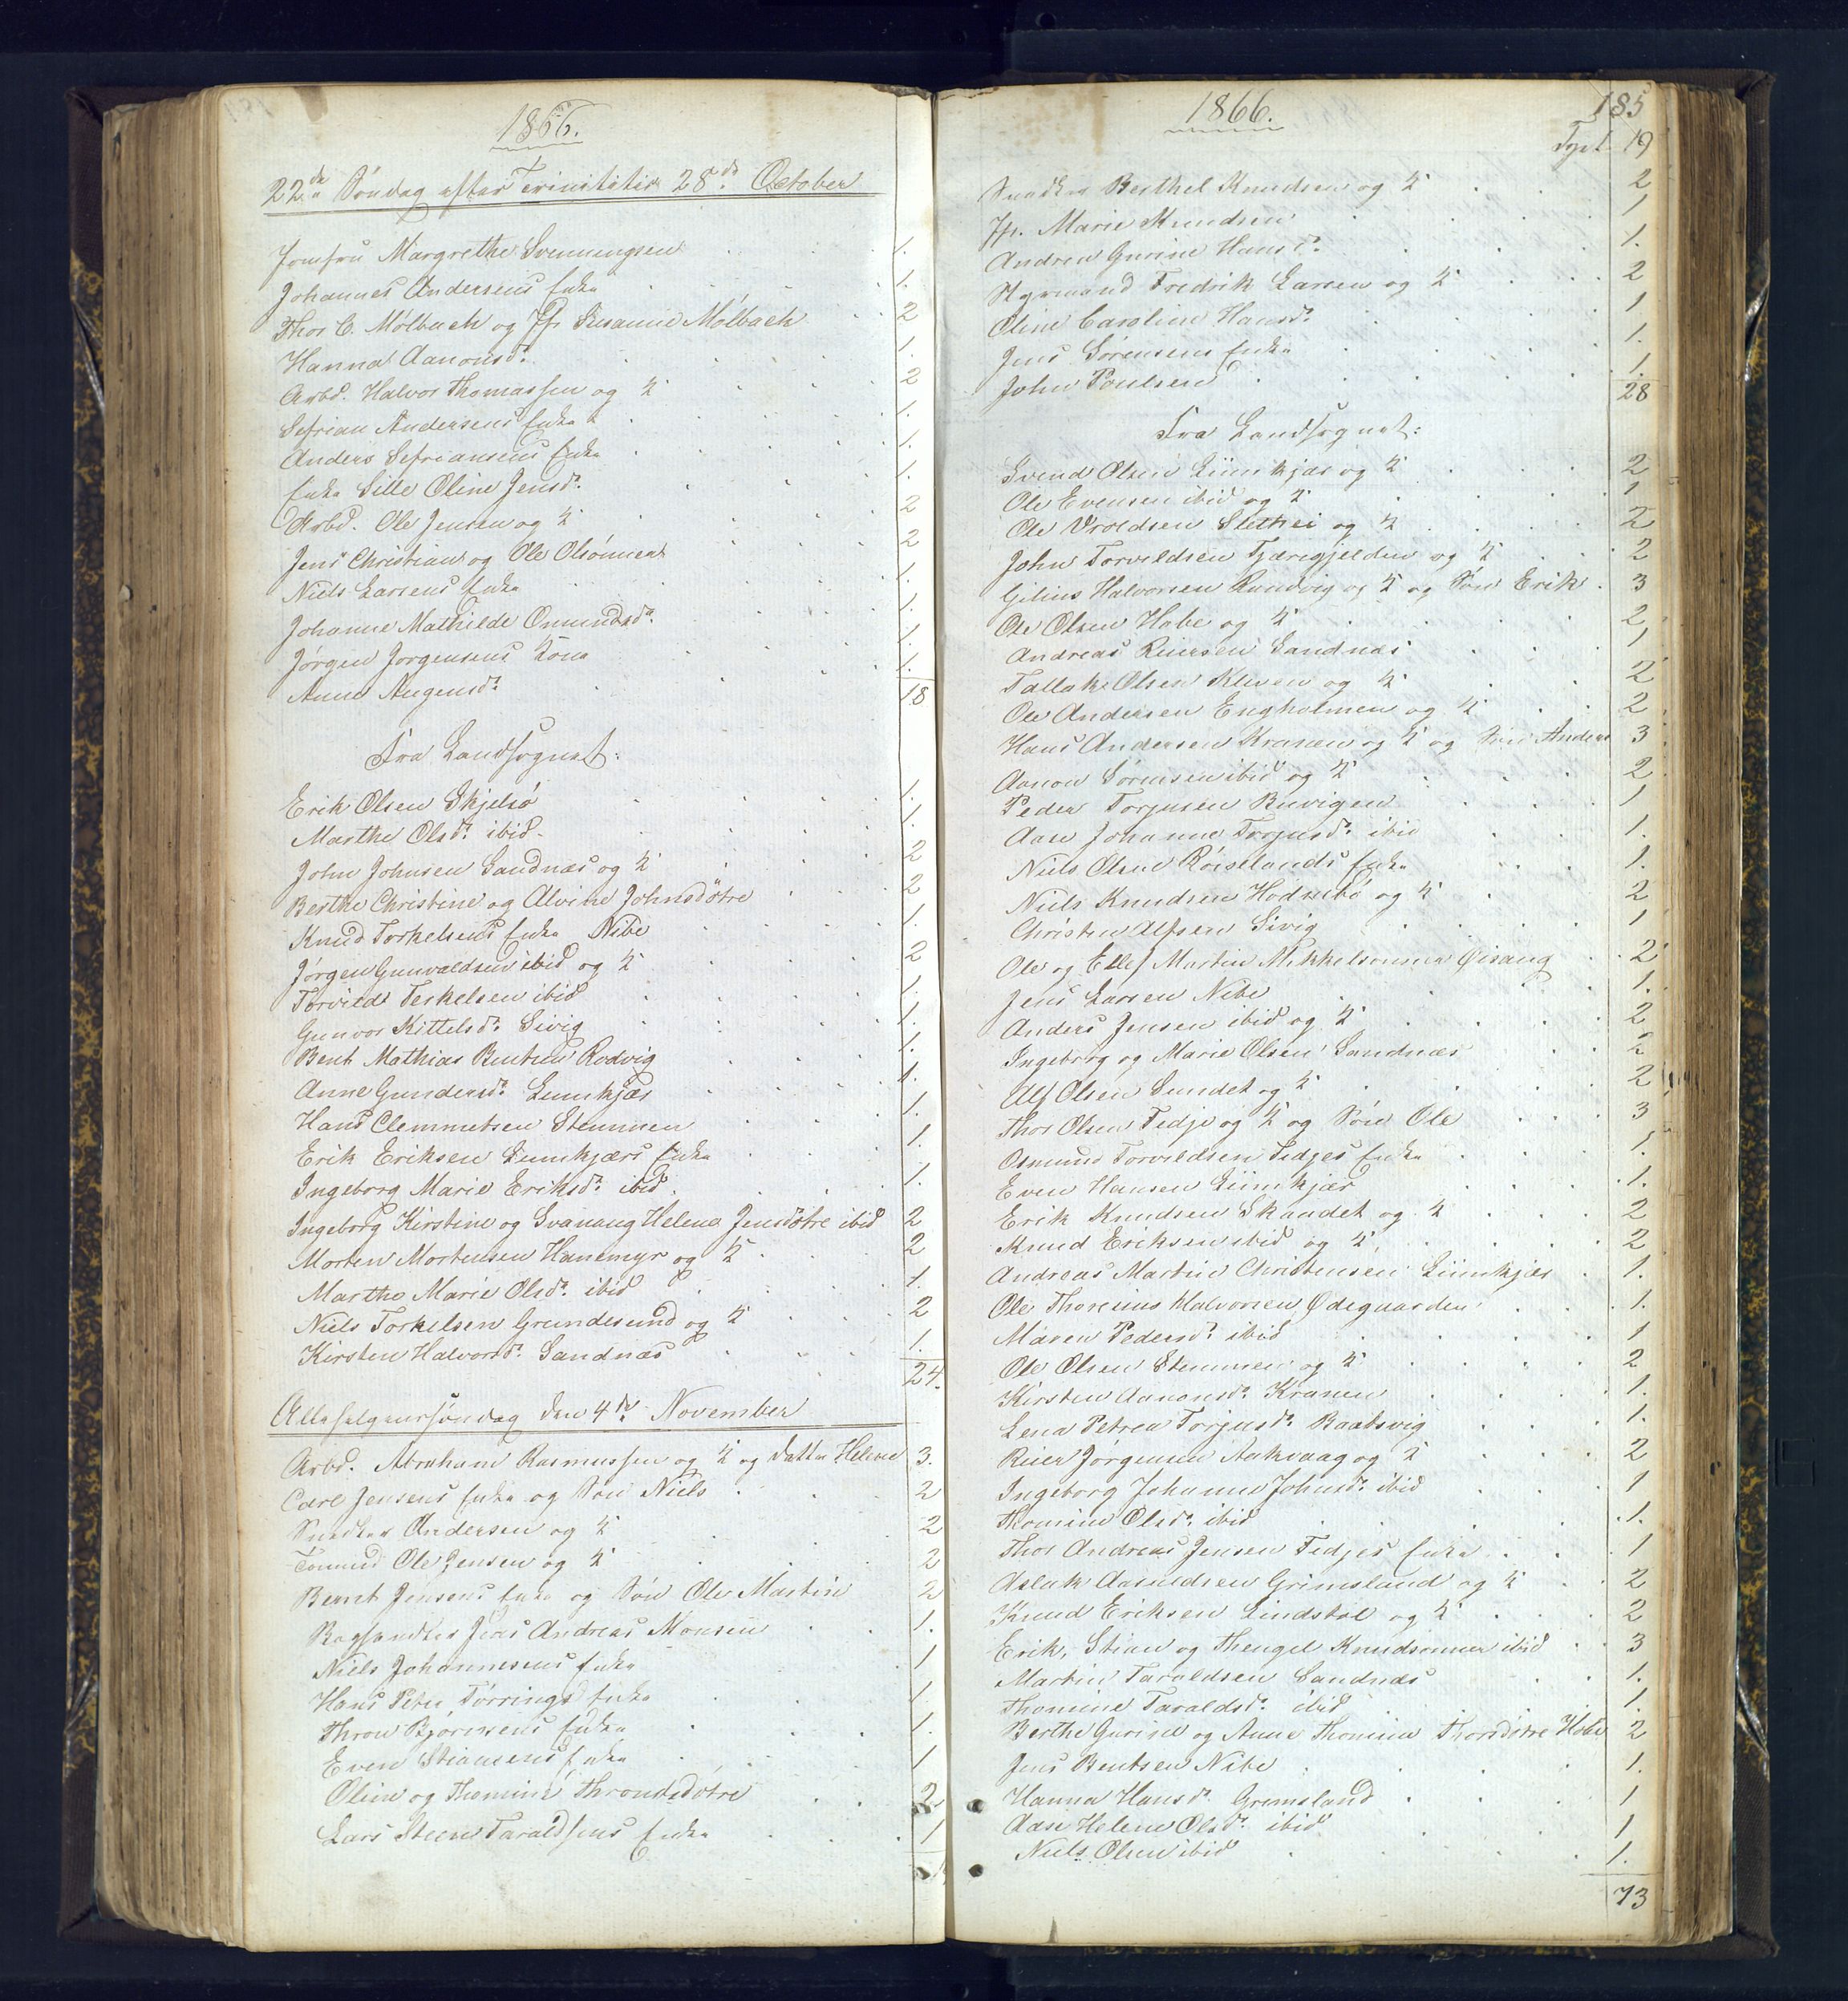 1866.
22de Søndag efter Trinitatis 28de October
Jomfru Margrethe Svenningsen 1.
Johannes Andersens Enke 1.
Thor C. Mølbach og Jfr Susanne Mølbach 2
Hanna Aanonsdr. 1.
Arbd. Halvor Thomassen og K. 2
Sefrian Andersens Enke 1.
Anders Sefriansens Enke 1.
Enke Sille Oline Jensdr. 1.
Arbd. Ole Jensen og K. 2
Jens Christian og Ole Olsønner 2
Niels Larsens Enke 1.
Johanne Mathilde Omundsdr. 1.
Jørgen Jørgensens Kone 1.
Anne Augensdr. 1.
18
Fra Landsognet:
Erik Olsen Skjelsø 1.
Marthe Olsdr. ibid. 1.
John Johnsen Sandnæs og K. 2
Berthe Christine og Alvine Johnsdøtre 2
Knud Torkelsens Enke Nibe 1.
Jørgen Gunvaldsen ibid og K. 2
Torvild Terkelsen ibid 1.
Gunvor Kittelsdr. Sivig 1.
Bent Mathias Bentsen Rodvig 1.
Anne Gundersdr. Liinkjær 1.
Hans Clemmetsen Stemmen 1.
Erik Eriksen Liinkjærs Enke 1.
Ingeborg Marie Eriksdr. ibid. 1.
Ingeborg Kirstine og Svanaug Helene Jensdøtre ibid 2
Morten Mortensen Hanemyr og K. 2
Marthe Marie Olsdr. ibid 1.
Niels Torkelsen Grundesund og K. 2
Kirsten Halvorsdr. Sandnæs 1.
24.
Allehelgenssøndag den 4de November
Arbd. Abraham Rasmussen og K. og Datter Helene 3.
Carl Jensens Enke og Søn Niels 2
Snedker Andersen og K. 2
Tømmd Ole Jensen og K. 2
Bernt Jensens Enke og Søn Ole Martin 2
Jens Andreas Monsen 1.
Niels Johannesens Enke 1
Hans Peter Tørrings Enke 1.
Thron Bjørnsens Enke 1.
Even Stiansens Enke 1
Oline og Thomine Throndsdøtre 2
Lars Steen Taraldsens Enke 1
1866.
185
Tpt 19
Snedker Berthel Knudsen og K. 2
Jfr. Marie Knudsen 1
Andrea Gurine Hansdr. 1.
Styrmand Fredrik Larsen og K. 2
Oline Caroline Hansdr. 1
Jens Sørensens Enke 1.
John Poulsen 1.
28
Fra Landsognet:
Svend Olsen Liinkjær og K. 2
Ole Evensen ibid og K. 1
Ole Vroldsen Slethei og K. 2
John Torvildsen Tjærigjelden og K. 2
Gilius Halvorsen Randvig og K. og Søn Erik 3
Ole Olsen Habe og K. 2
Andreas Reiersen Sandnæs 1
Tallak Olsen Kleven og K. 2
Ole Andersen Engholmen og K. 2
Hans Andersen Kranen og K. og Søn Anders 3
Aanon Sørensen ibid og K. 2
Peder Torjusen Buvigen 1
Aase Johanne Torjusdr. ibid 1.
Niels Olsen Røiselands Enke 1.
Niels Knudsen Hodnebø og K. 2
Christen Alfsen Sivig 1
Ole og Ellef Martin Mikkelsønner Øisang 2
Jens Larsen Nibe 1.
Anders Jensen ibid og K. 2
Ingeborg og Marie Olsen Sandnæs 2
Alf Olsen Sundet og K. 2
Thor Olsen Tedje og K. og Søn Ole 3
Osmund Torvildsen Tedjes Enke 1.
Even Hansen Liinkjær 1.
Erik Knudsen Skaadet og K. 2
Knud Eriksen ibid og K. 2
Andreas Martin Christensen Liinkjær 1.
Ole Thorenius Halvorsen Ødegaarden 1.
Maren Pedersdr. ibid 1
Ole Olsen Stemmen og K. 2
Kirsten Aanonsdr. Kranen 1.
Lena Petrea Torjusdr. Baabsvig 1.
Reier Jørgensen Aakvaag og K. 2
Ingeborg Johanne Johnsdr. ibid 1
Thomine Olsdr. ibid 1.
Thor Andreas Jensen Tedjes Enke 1
Aslak Aasuldsen Grimsland og K. 2
Knud Eriksen Lindstøl og K. 2
Erik, Stian og Thengel Knudsønner ibid 3
Martin Taraldsen Sandnæs 1.
Thomine Taraldsdr. ibid 1.
Berthe Gurine og Anne Thomine Thorsdøtre Hobe 2
Jens Bentsen Nibe 1.
Hanna Hansdr. Grimsland 1
Aase Helene Olsdr. ibid 1
Niels Olsen ibid 1.
73